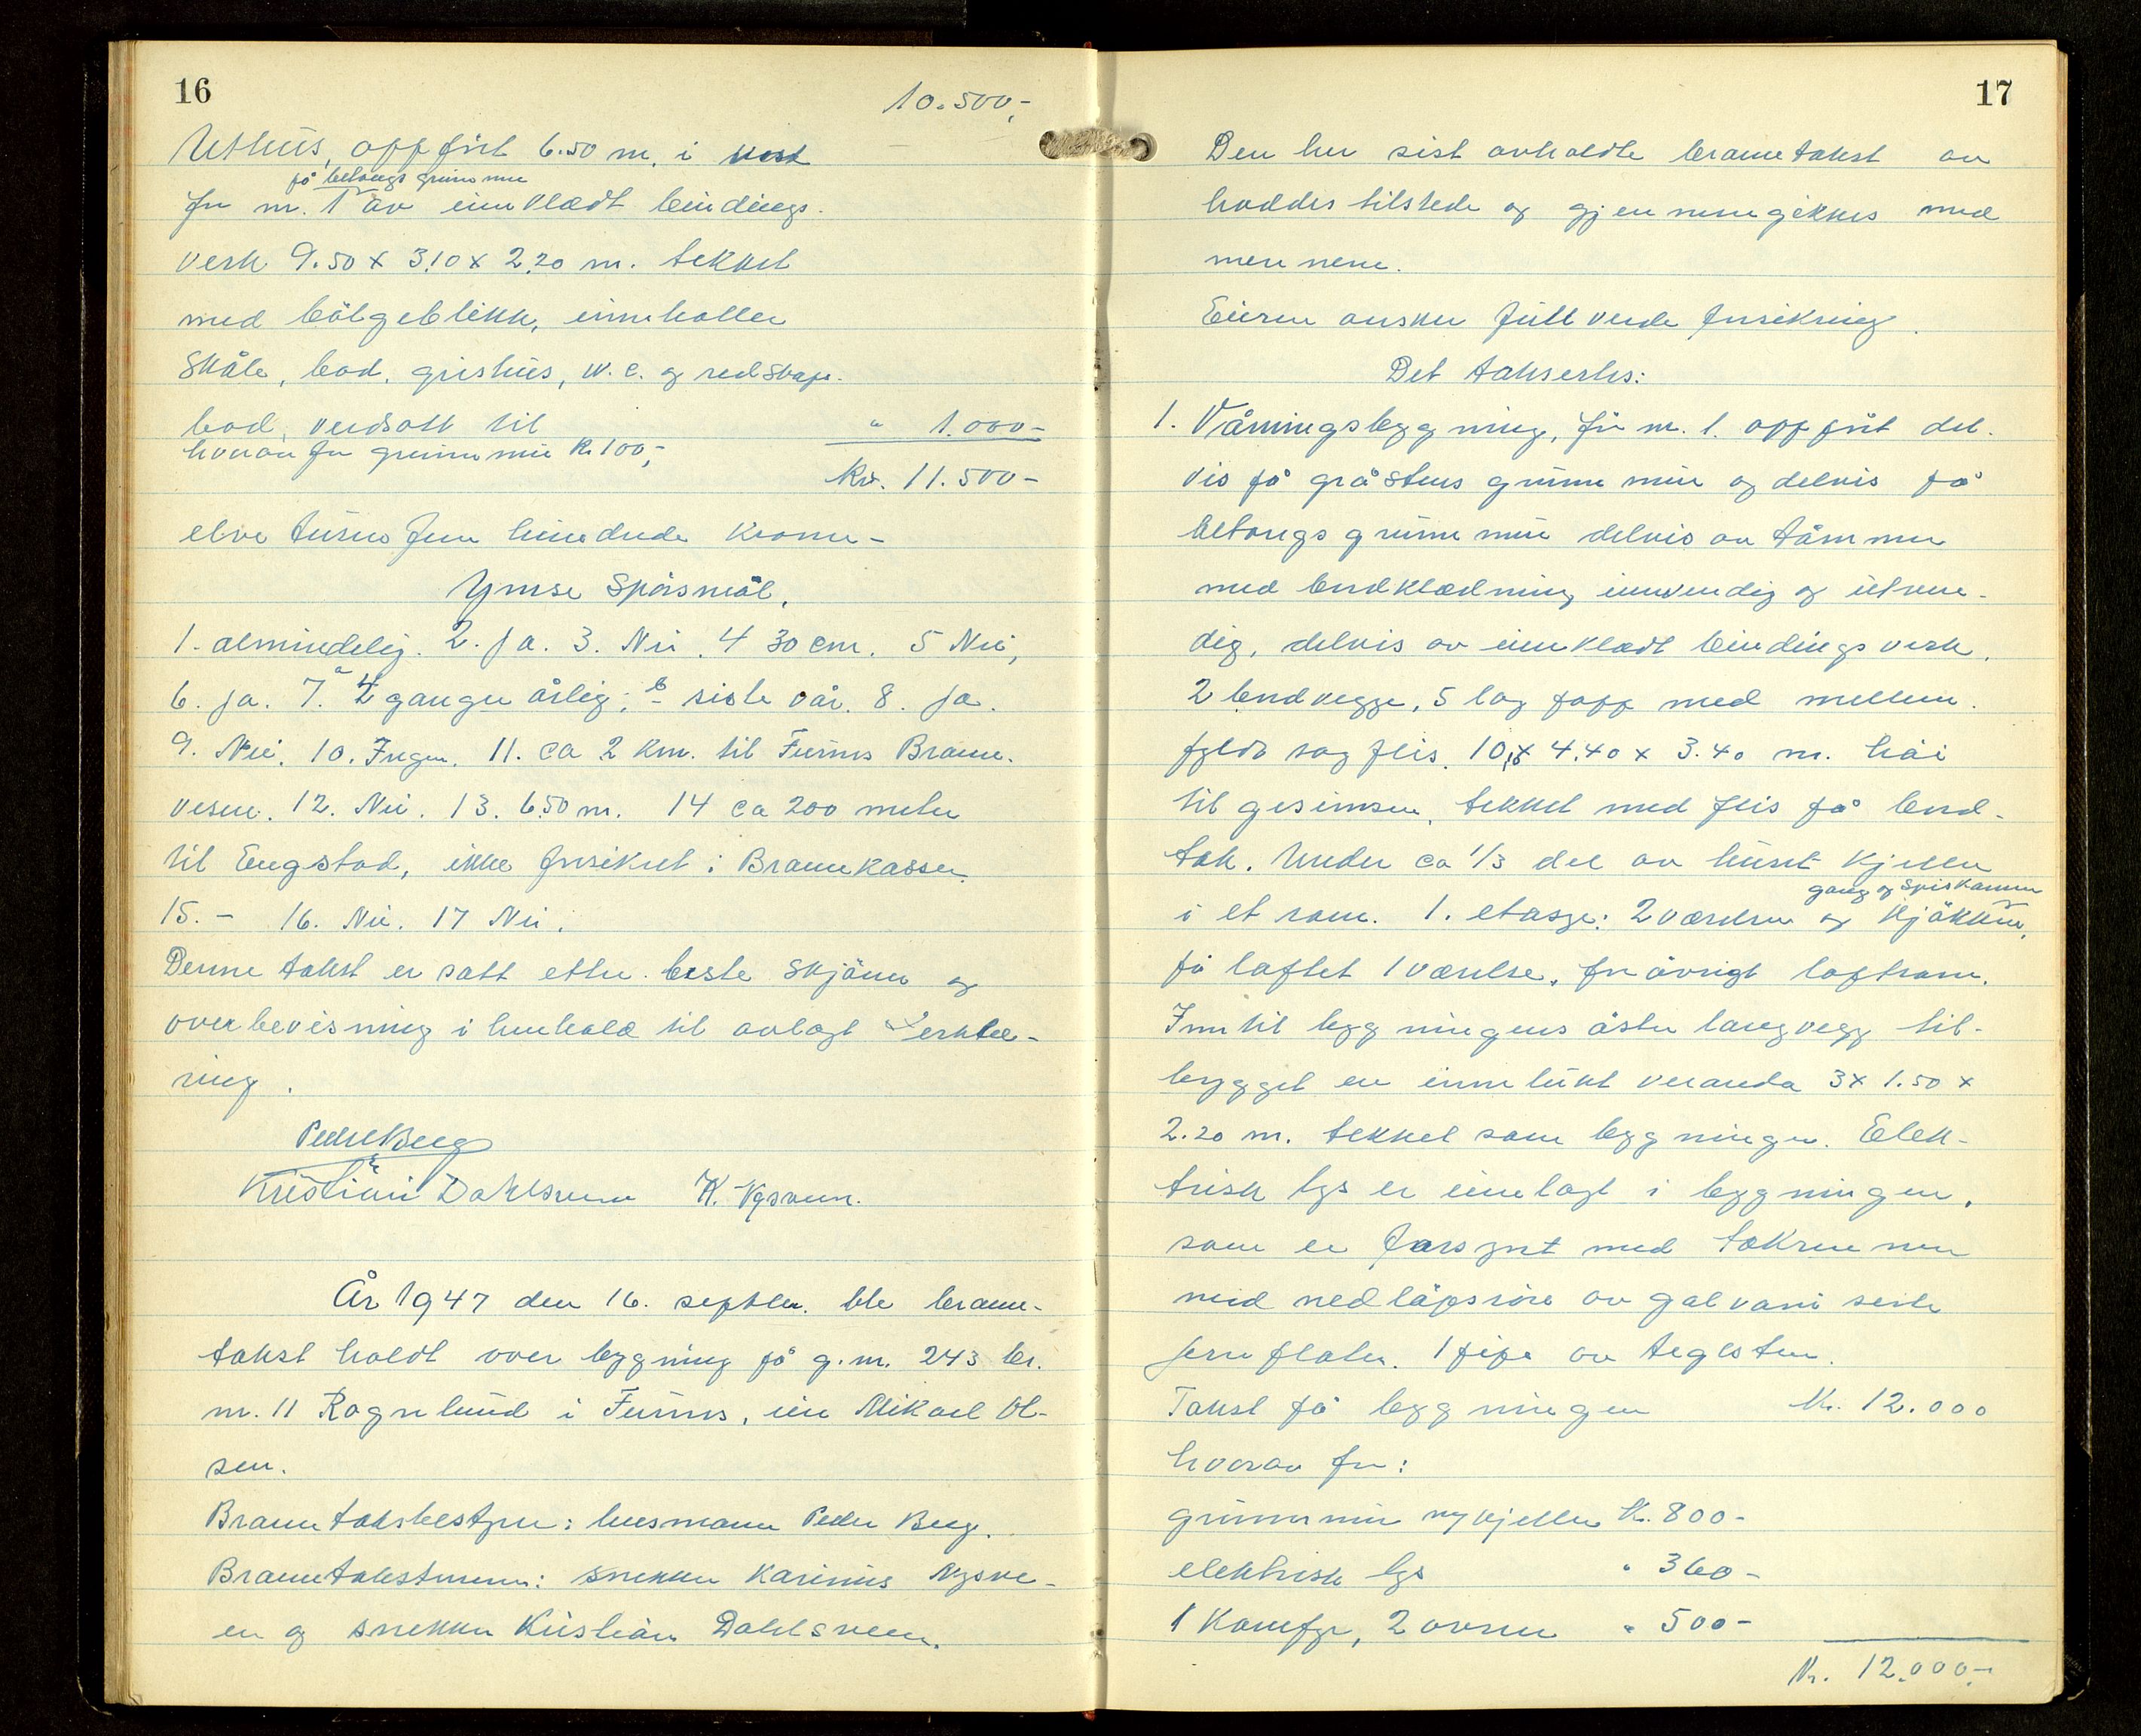 16
10.500,-
Uthus, oppført 6.50 m. i vest
på betongs grunnmur
for nr. 1 av innklædt bindings-
verk 9.50 x 3.10 x 2.20 m. tekket
med bölgeblikk, inneholder
Skåle, bod, grishus, w.c. og redskaps-
bod, verdsatt til " 1.000-
hvorav for grunnmur kr 100,-
Kr. 11.500-
elve tusen fem hundrede kroner-
Ymse Spörsmål.
1. almindelig. 2. Ja. 3. Nei. 4 30 cm. 5 Nei,
6. Ja. 7. a 4 ganger årlig; b siste vår. 8. Ja.
9. Nei. 10. Ingen. 11. ca 2 km. til Furnes Brann-
vesen. 12. Nei. 13. 6.50 m. 14 ca 200 meter
til Engstad, ikke forsikret i Brannkassen.
15. - 16. Nei. 17 Nei.
Denne takst er satt etter beste Skjönn og
overbevisning i henhold til avlagt Erklæ-
ring.
Peder Berg
Kristian Dahlsveen K. Nysveen.
År 1947 den 16. septbr. ble brann-
takst holdt over bygning på g.nr. 243 br.
nr. 11 Ragnlund i Furnes, eier Mikael Ol-
sen.
Branntakstbestyrer: lensmann Peder Berg.
Branntakstmenn: snekker Karinius Nysve-
en og snekker Kristian Dahlsveen.
17
Den her sist avholdte branntakst av
haddes tilstede og gjennemgikkes med
mennene.
Eieren ønsker full verdi forsikring.
Det taksertes:
1. Våningsbygning, før nr. 1. oppført del-
vis på gråstens grunnmur og delvis på
betongs grunnmur delvis av tømmer
med bordklædning innvendig og utven-
dig, delvis av innklædt bindingsverk,
2 bordvegge, 5 lag papp med mellem-
fyldt sagflis. 10,  x 4.40 x 3.40 m. höi
til gesimsen, tekket med flis på bord-
tak. Under ca 1/3 del av huset kjeller
gang og Spiskammer
i et rom. 1. etasje: 2 værelser og kjökken,
på loftet 1 værelse, for övrigt loftsrom.
Inn til bygningens östre langvegg til-
bygget en innelukt veranda 3 x 1.50 x
2.20 m. tekket som bygningen. Elek-
trisk lys er innlagt i bygningen,
som er forsynt med takrenner
med nedlöpsrör av galvaniserte
jernplater. 1 pipe av teglsten.
Takst på bygningen Kr. 12.000
hvorav for:
grunnmur og kjeller Kr. 800-
elektrisk lys " 360-
1 Komfyr, 2 ovner " 500-
Kr. 12.000,-